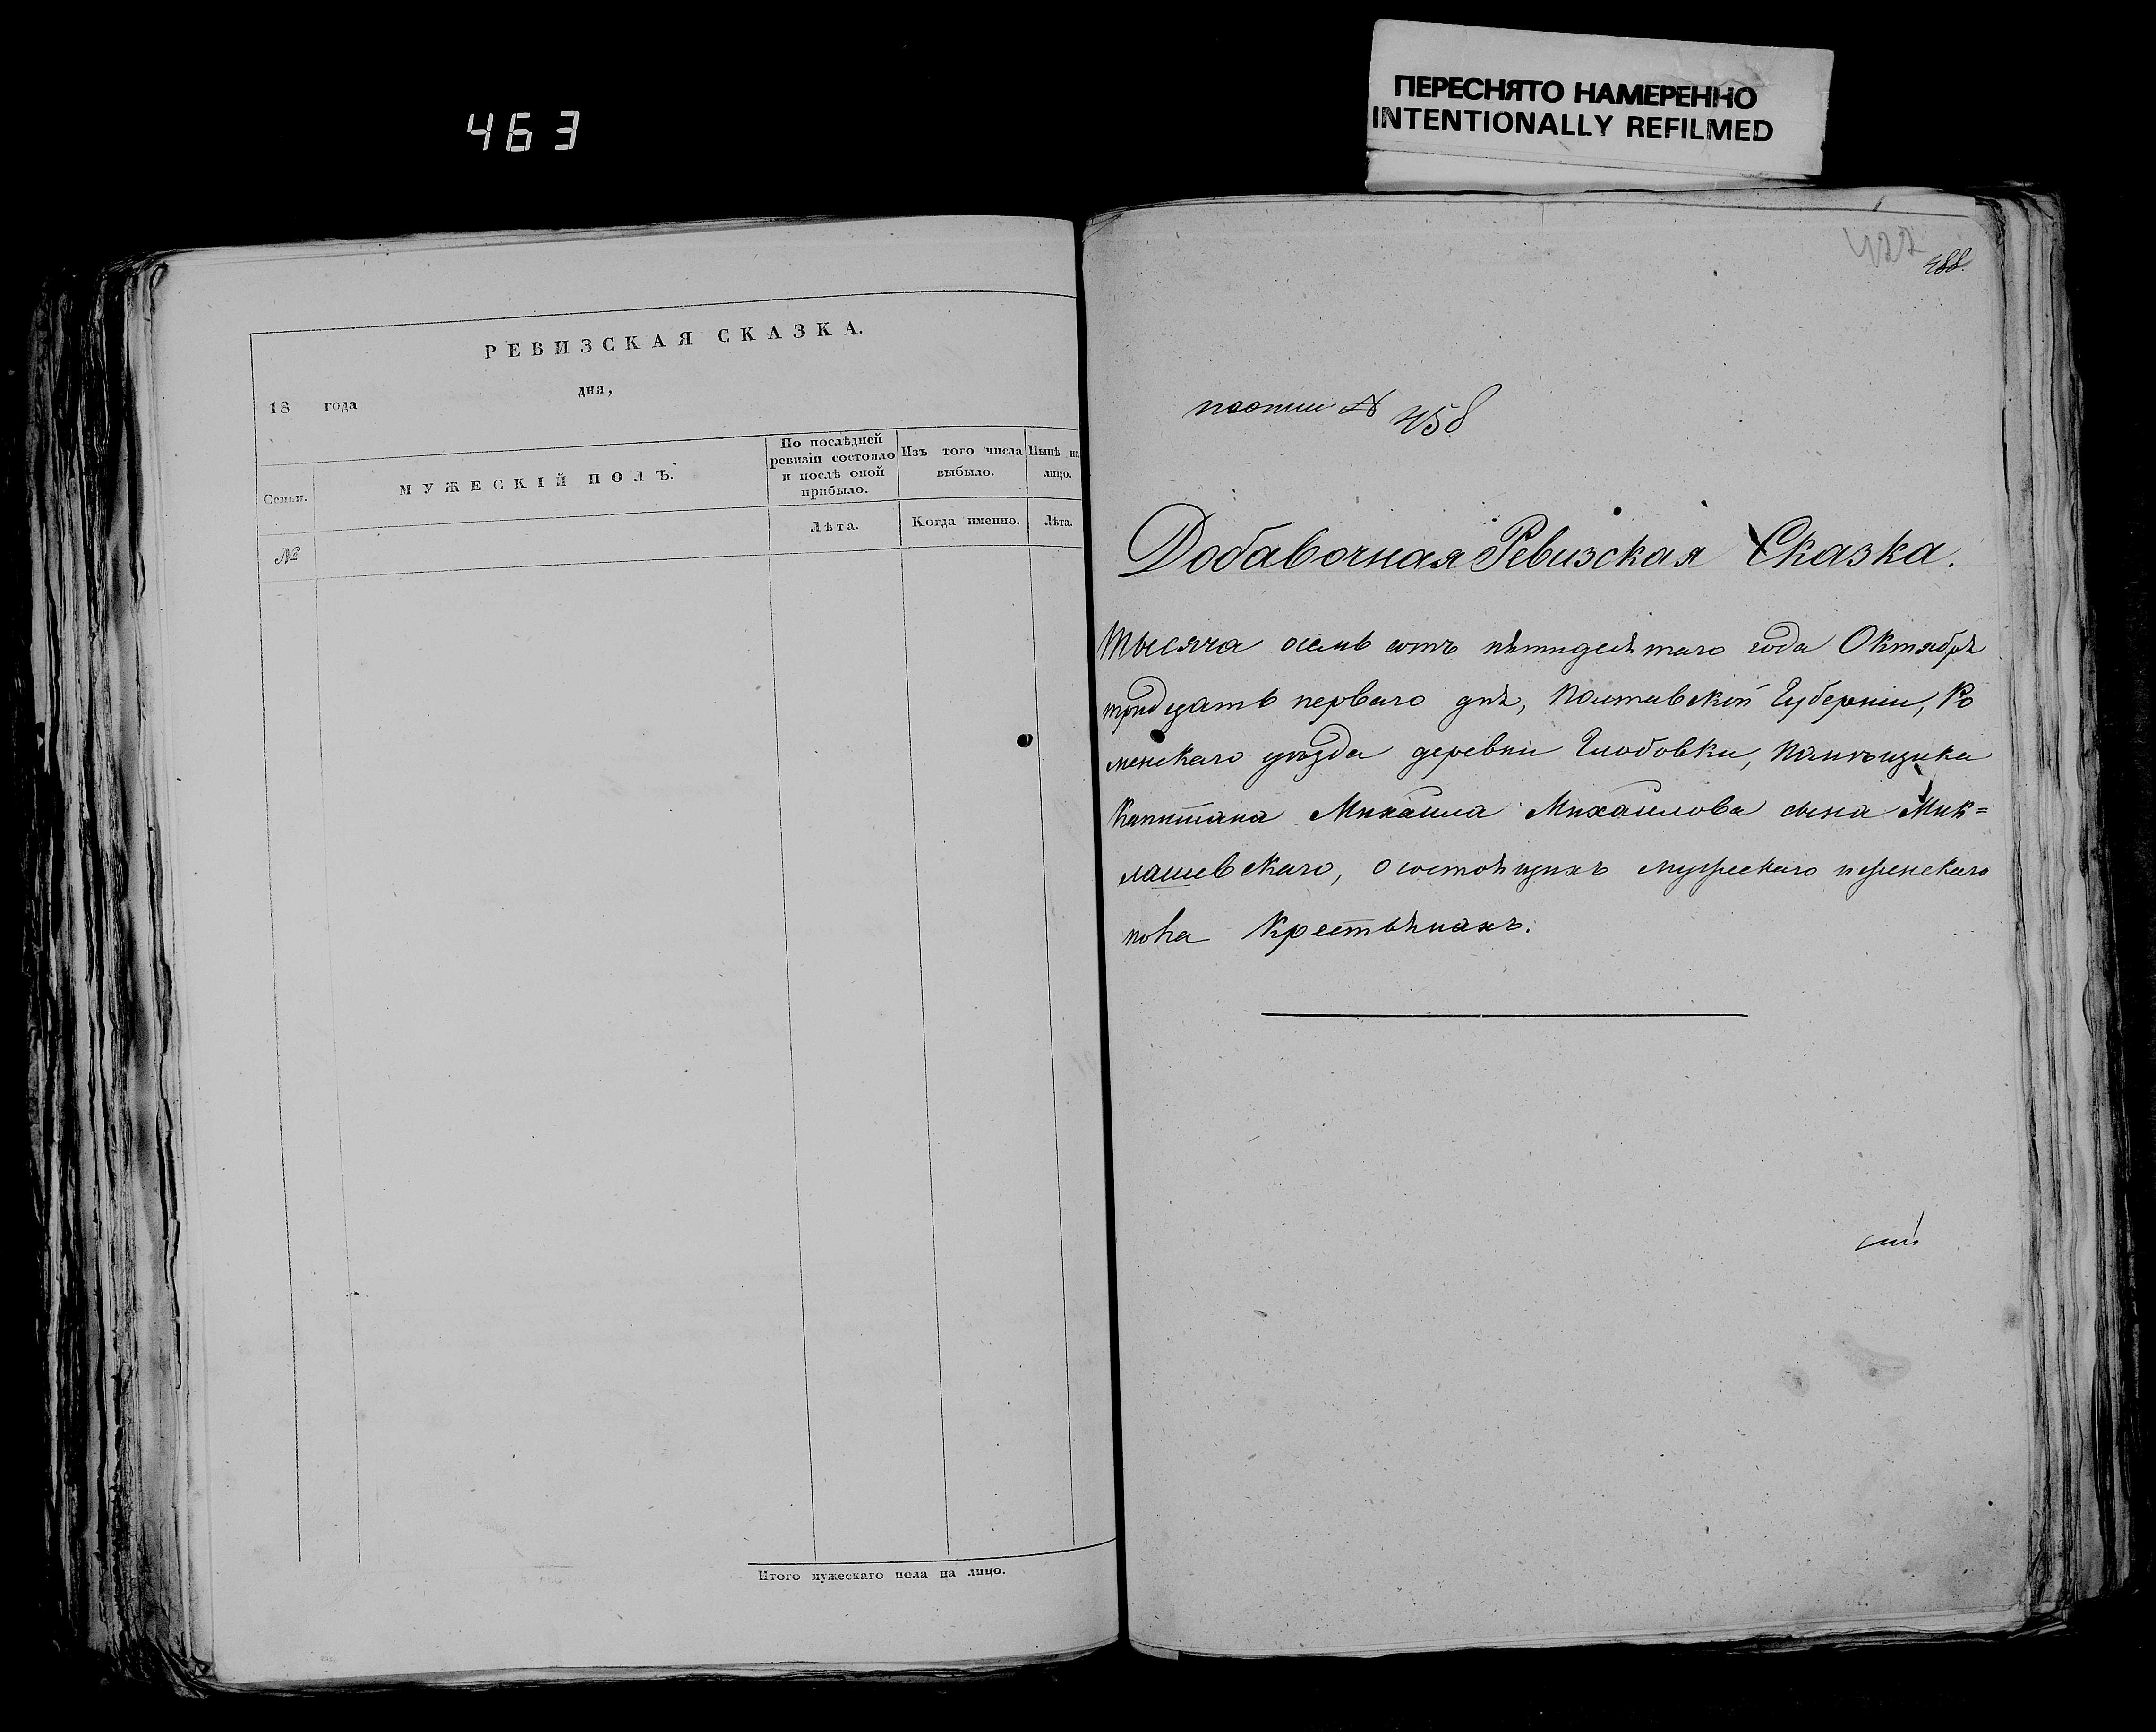 463
ПЕРЕСНЯТО НАМЕРЕННО
INTENTIONALLY REFILMED
РЕВИЗСКАЯ СКАЗКА.
18 года дня,
Семьи.
МУЖЕСКІЙ ПОЛЪ.
По послѣдней
ревизіи состояло
и послѣ оной
прибыло.
Изъ того числа
выбыло.
Нынѣ на
лицо.
Лѣта.
Когда именно.
Лѣта.
№
Итого мужескаго пола на лицо.
422
488.
№ 458
Добавочная Ревизская Сказка.
Тысяча осемь сотъ пятидесятаго года Октября
тридцать перваго дня, Полтавской Губерніи, Ро
менскаго уѣзда деревни Глобовки, помѣщика
Капитана Михаила Михайлова сына Мик=
лашевскаго, о состоящихъ мужескаго и женскаго
пола Крестьянахъ.